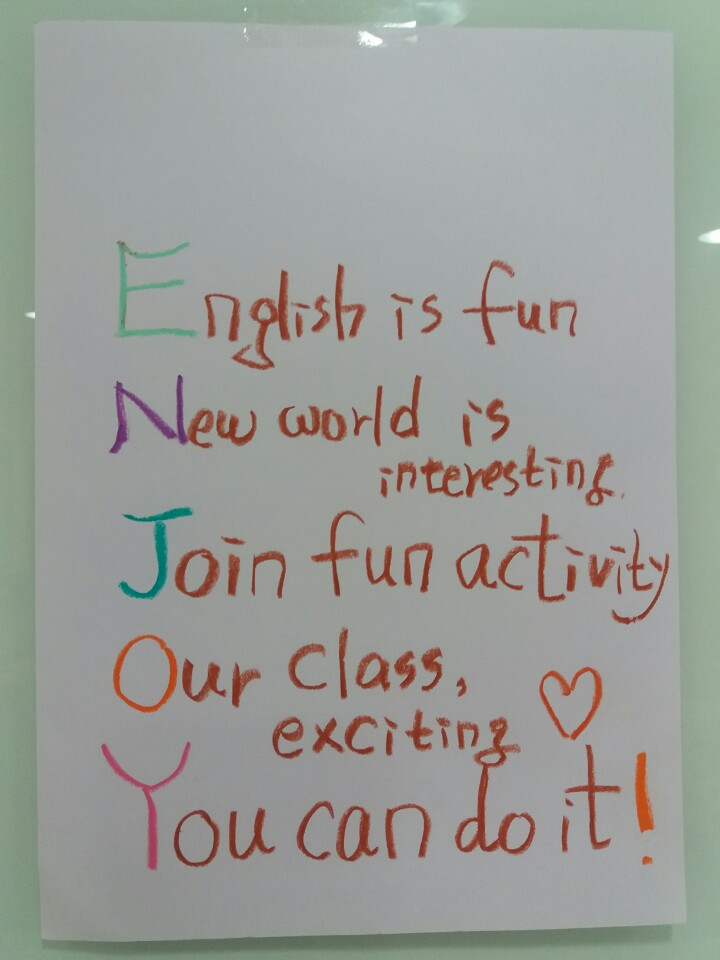 English is fun
New world is
interesting.
Join fun activity
Our class,
exciting
You can do it!